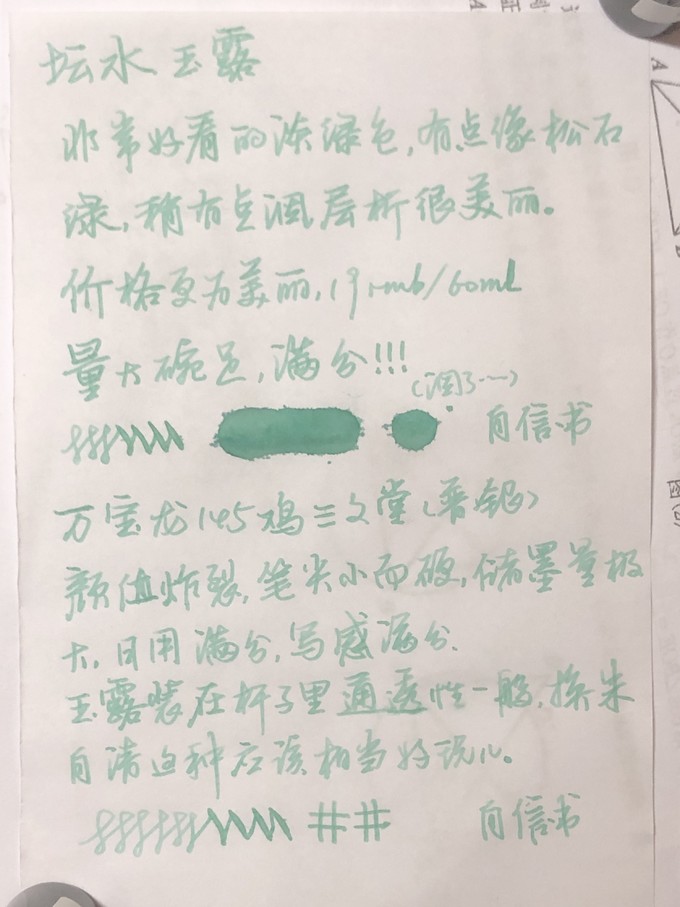 坛水 玉露
非常好看的淡绿色,有点像松石
绿,稍有点洇层析很美丽。
价格更为美丽,19rmb/60ml
量大碗足,满分!!!
(洇了……)
自信书
万宝龙145鸡三文堂(普银)
颜值炸裂,笔尖小而硬,储墨量极
大,日用满分,写感满分.
玉露装在杆子里通透性一般,换朱
自清这种应该相当好玩儿。
自信书
A